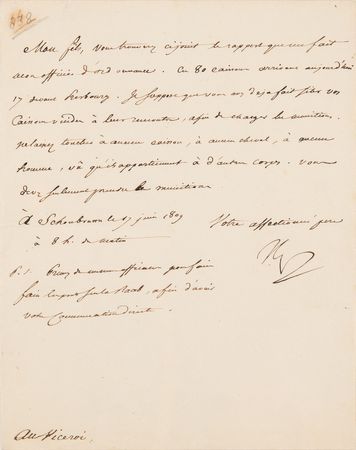 642
Mon fils, vous trouverez cijoint le rapport que me fait
mon officier d'ordonnance. Ces 80 caissons arrivent aujourd'hui
17 devant Presbourg. Je suppose que vous avez deja fait filer vos
Caissons vuides à leur rencontre, afin de charger les munitions.
ne laissez toucher à aucun caisson, à aucun cheval, à aucun
homme, vû qu'ils appartiennent à d'autres corps. vous
devez seulement prendre les munitions
à Schonbrunn le 17 juin 1809
à 8 h. du matin
Votre affectionné pere
P.S. officier pour faire
faire les ponts sur la Raab, afin d'avoir
votre Communication directe.
Au Viceroi.